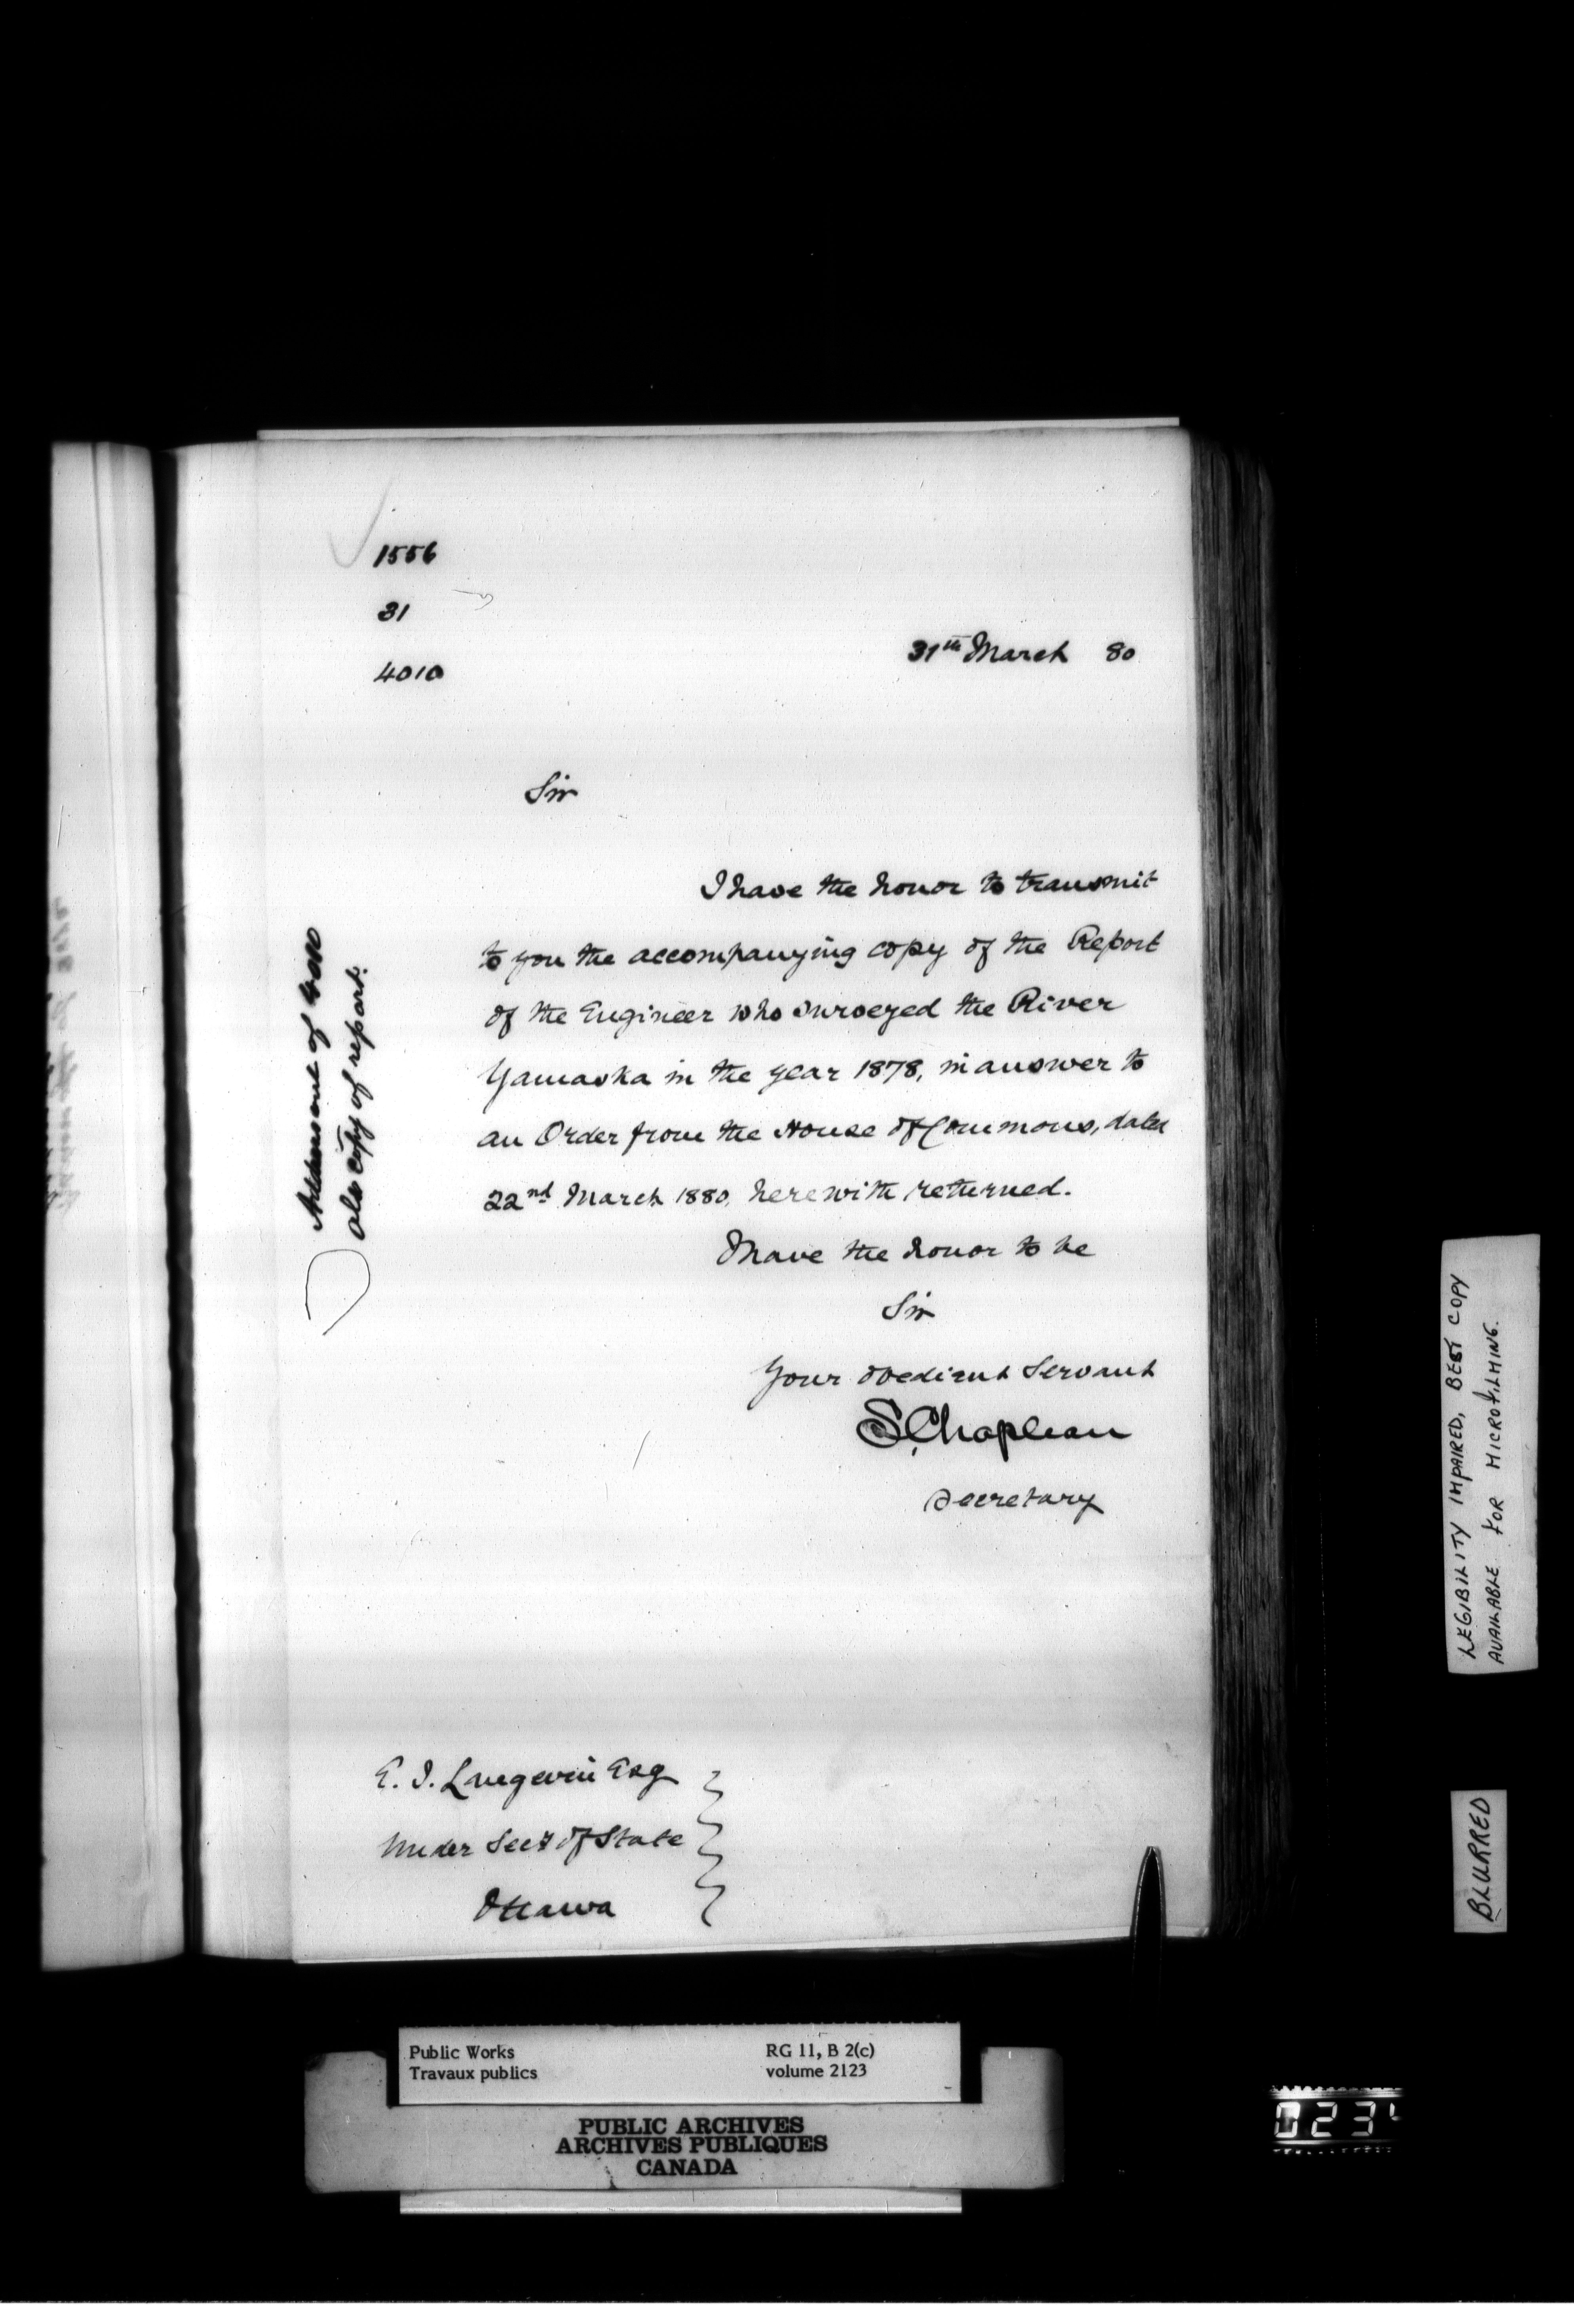 1556
31
4010
31th March 80
Sir
I have the honor to transmit
to you the accompanying copy of the Report
of the Engineer who surveyed the River
Yamaska in the year 1878, in answer to
an Order from the House of Commons, dated
22nd March 1880, herewith returned.
I have the honor to be
Sir
Your obedient Servant
S. Chapleau
Secretary
E. J. Langevin Esq
Under Secy of State
Ottawa
of 4010
also copy of report.
LEGIBILITY IMPAIRED, BEST COPY
AVAILABLE FOR MICROFILMING.
BLURRED
Public Works
Travaux publics
RG 11, B 2(c)
volume 2123
PUBLIC ARCHIVES
ARCHIVES PUBLIQUES
CANADA
023